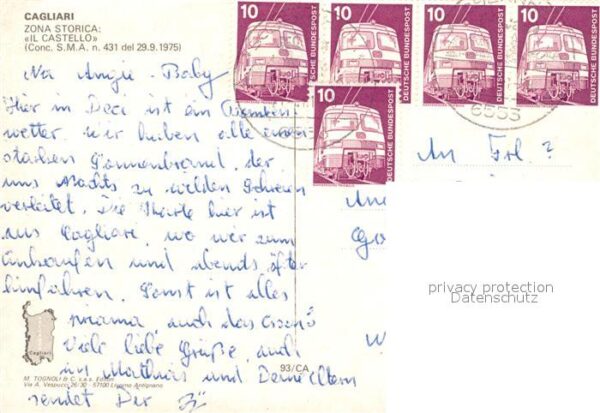 CAGLIARI
ZONA STORICA:
«IL CASTELLO»
(Conc. S.M.A. n. 431 del 29.9.1975)
10 DEUTSCHE BUNDESPOST
10 DEUTSCHE BUNDESPOST
10 DEUTSCHE BUNDESPOST
10 DEUTSCHE BUNDESPOST
10 DEUTSCHE BUNDESPOST
6553
Na Angie-Baby
Hier in Deci ist ein
wetter. wir haben alle einen
starken Sonnenbrand, der
uns Nachts zu wilden Schreien
verleitet. Die Karte hier ist
aus Cagliari, wo wir zum
einkaufen und abends öfter
hinfahren. Sonst ist alles
prima, auch das Essen
Viele liebe Grüße, auch
an Matthias und Deine Eltern
sendet Dir
An Frl. ?
privacy protection
Datenschutz
Cagliari
93/CA
M. TOGNOLI & C. s.a.s. Editori
Via A. Vespucci 26/30 - 57100 Livorno Antignano